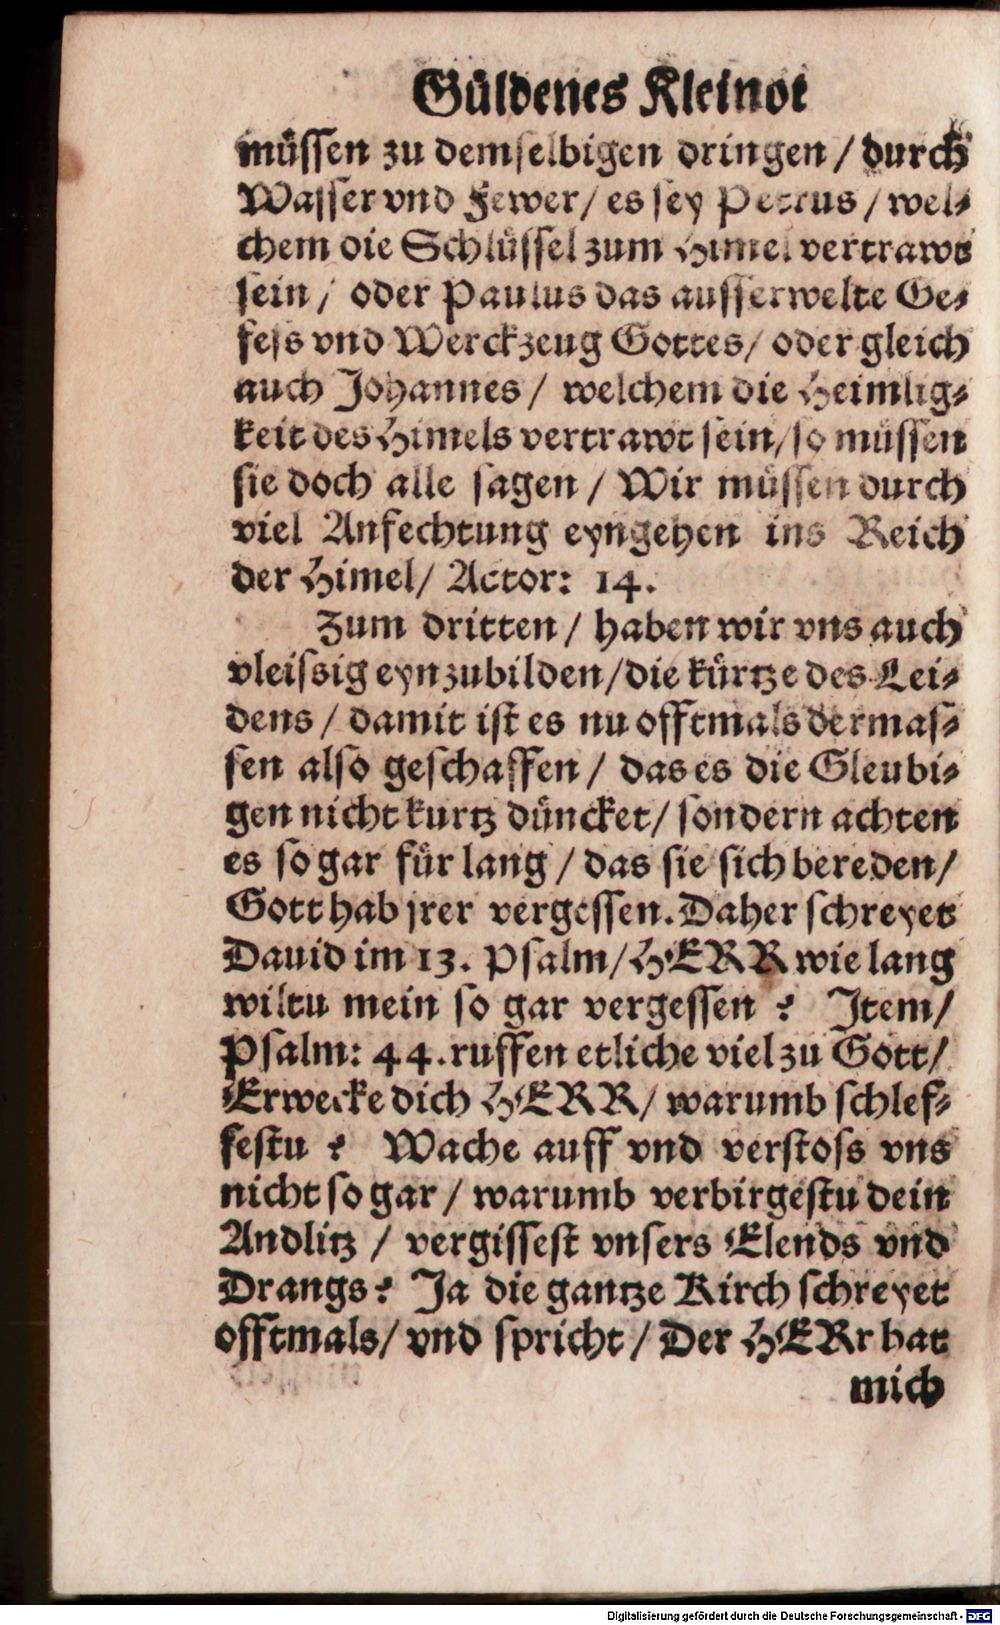 Güldenes Kleinot
müssen zu demselbigen dringen / durch
Wasser vnd Fewer / es sey Petrus / wel⸗
chem die Schlüssel zum Himel vertrawt
sein / oder Paulus das ausserwelte Ge⸗
fess vnd Werckzeug Gottes / oder gleich
auch Johannes / welchem die Heimlig⸗
keit des Himels vertrawt sein / so müssen
sie doch alle sagen / Wir müssen durch
viel Anfechtung eyngehen ins Reich
der Himel / Actor: 14.
Zum dritten / haben wir vns auch
vleissig eynzubilden / die kürtze des Lei⸗
dens / damit ist es nu offtmals dermas⸗
sen also geschaffen / das es die Gleubi⸗
gen nicht kurtz düncket / sondern achten
es so gar für lang / das sie sich bereden /
Gott hab jrer vergessen. Daher schreyet
Dauid im 13. Psalm / HERR wie lang
wiltu mein so gar vergessen ? Item /
Psalm: 44. ruffen etliche viel zu Gott /
Erwecke dich HERR / warumb schlef⸗
festu ? Wache auff vnd verstoss vns
nicht so gar / warumb verbirgestu dein
Andlitz / vergissest vnsers Elends vnd
Drangs ? Ja die gantze Kirch schreyet
offtmals / vnd spricht / Der HERr hat
mich
Digitalisierung gefördert durch die Deutsche Forschungsgemeinschaft - DFG